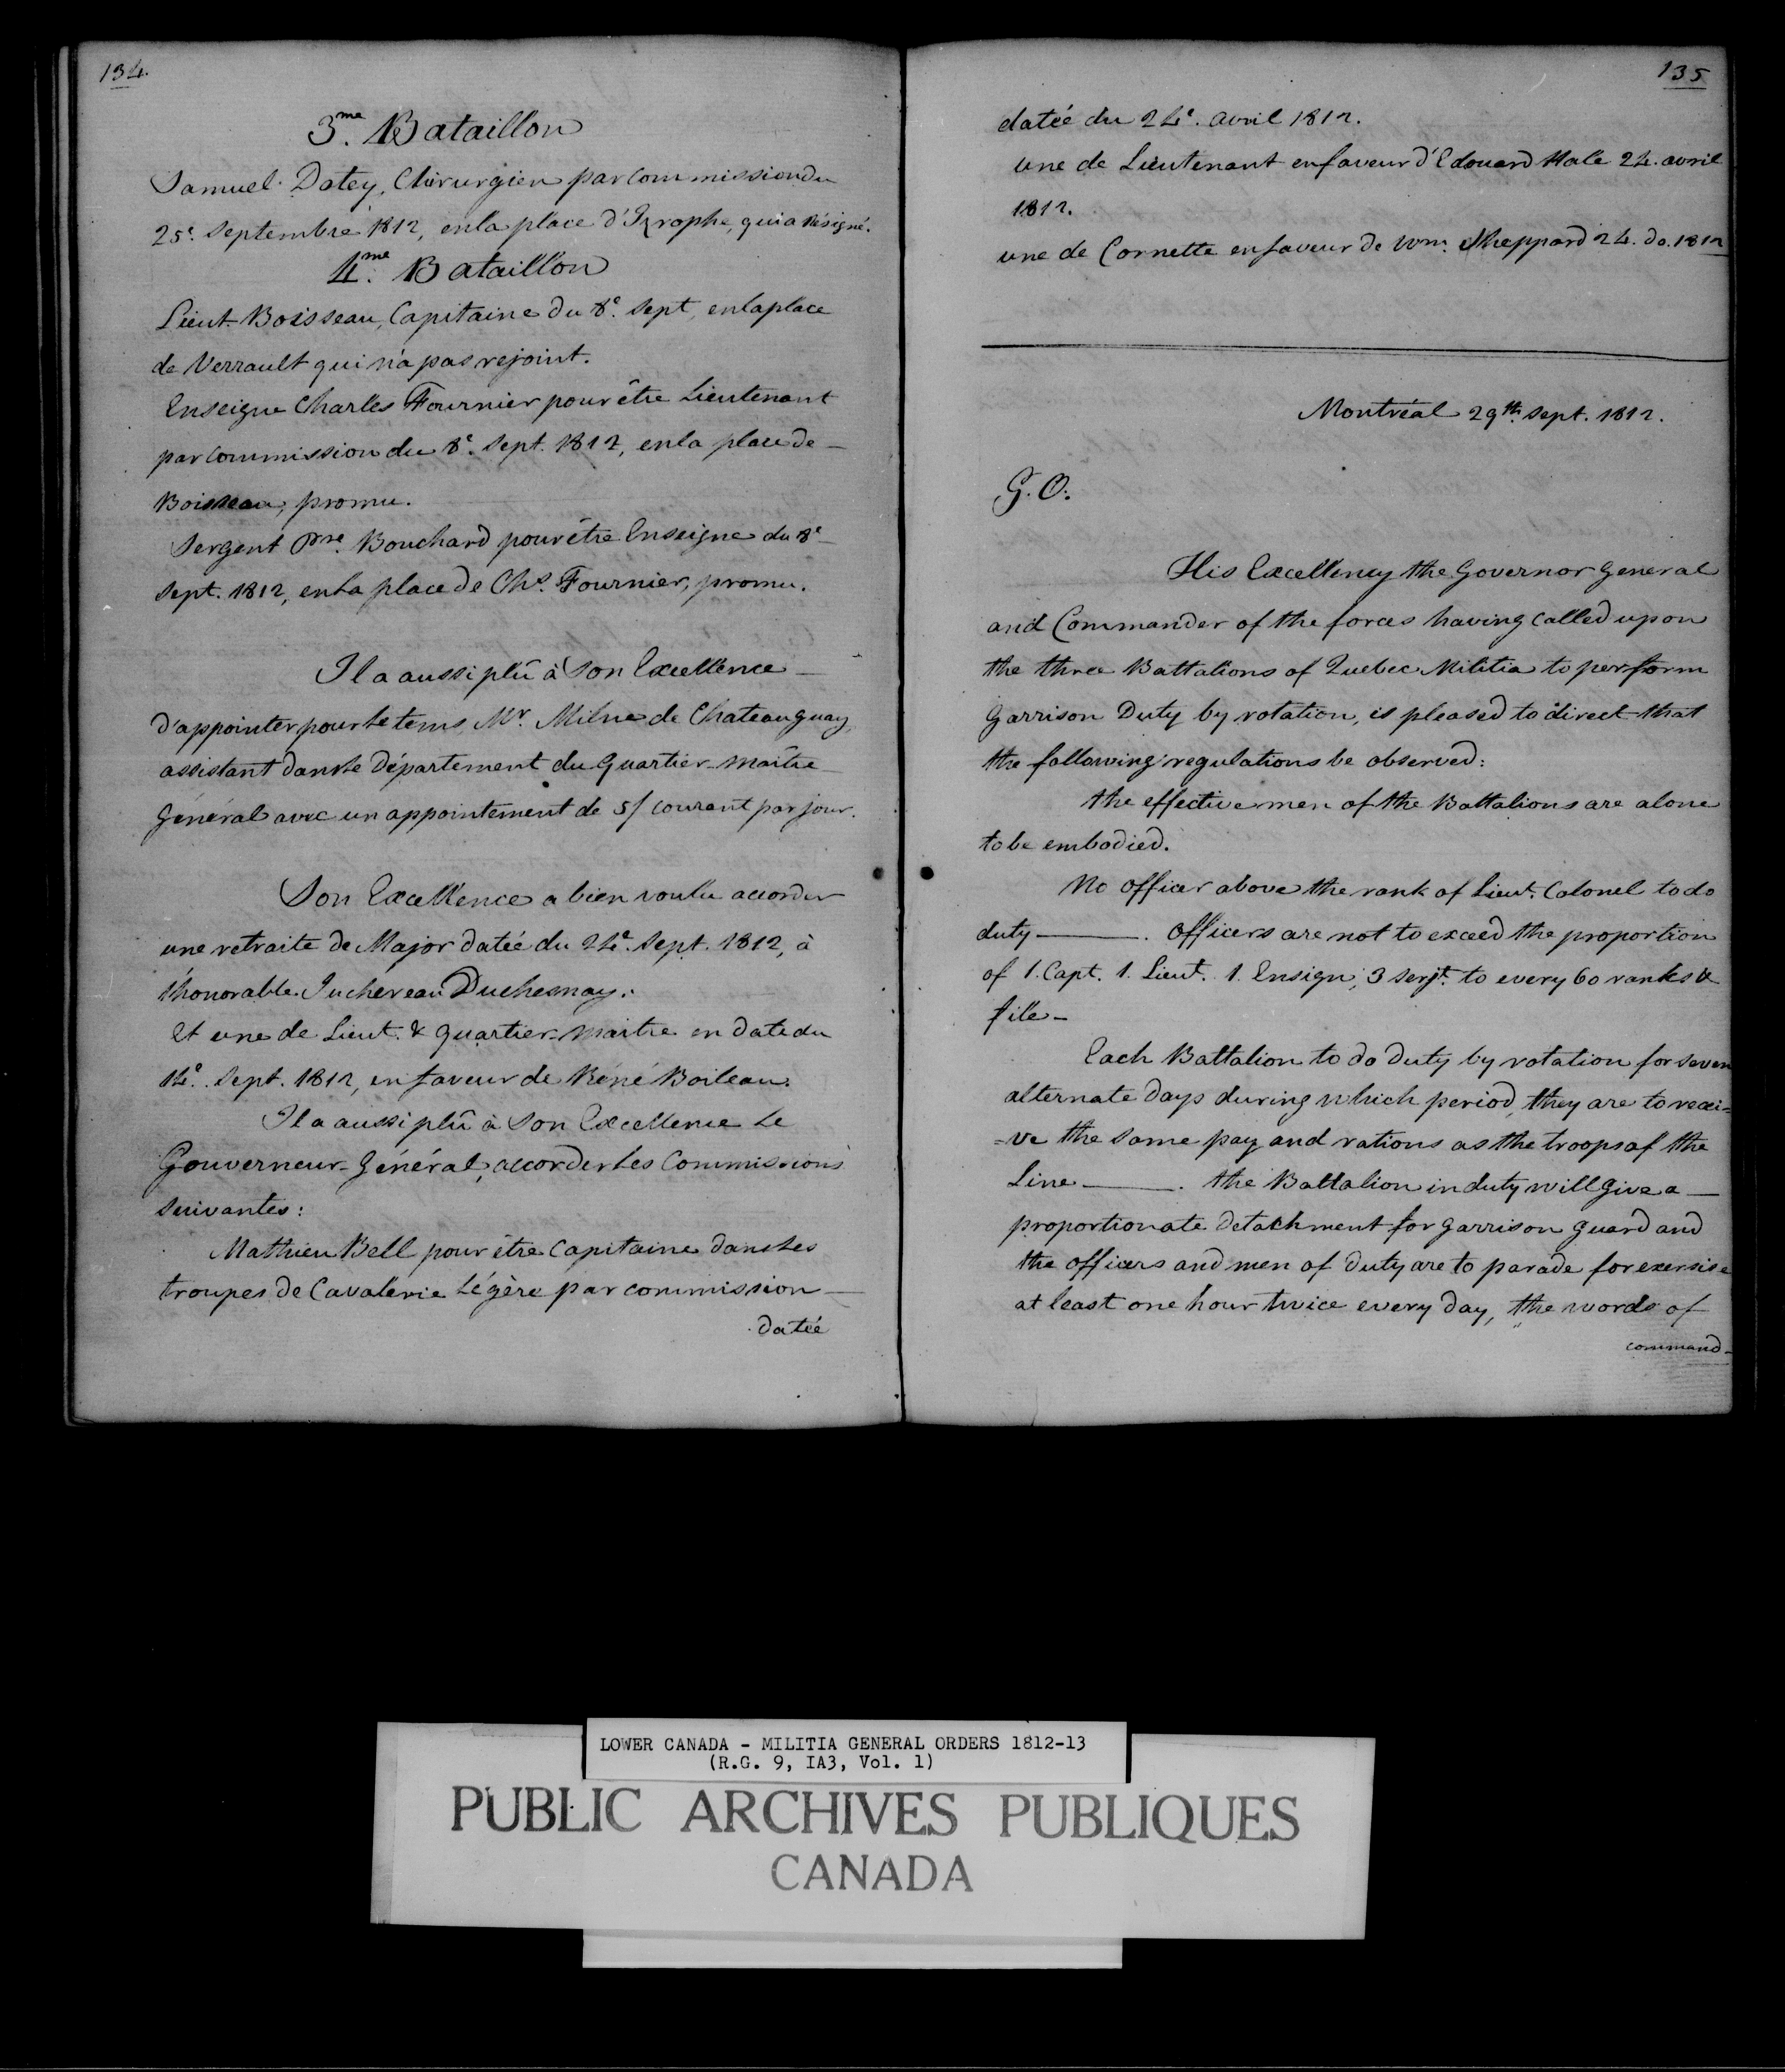 134.
3.me Bataillon
Samuel Datey, Chirurgien par commission du
25e. Septembre 1812, en la place d' qui a résigné.
4.me Bataillon
Lieut. Boisseau, Capitaine du 8e. Sept, en la place
de Verrault qui n'a pas rejoint.
Enseigne Charles Fournier pour être Lieutenant
par commission du 8e. Sept. 1812, en la place de —
Boisseau, promu.
Sergent Prre. Bouchard pour être Enseigne du 8e —
Sept. 1812, en la place de Chs. Fournier, promu.
Il a aussi plû à Son Excellence —
d'appointer pour le tems, Mr. Milne de Chateauguay,
assistant dans le Département du Quartier-Maître —
Général avec un appointement de 5/ courant par jour.
Son Excellence a bien voulu accorder
une retraite de Major datée du 24e. Sept. 1812, à
l'honorable Juchereau Duchesnay.
Et une de Lieut. & Quartier-Maitre en date du
14e. Sept. 1812, en faveur de Réné Boileau.
Il a aussi plû à Son Excellence Le
Gouverneur-Général, accorder les Commissions
suivantes:
Mathieu Bell pour être Capitaine dans les
troupes de Cavalerie Légère par commission —
datée
135
datée du 24e. avril 1812.
une de Lieutenant en faveur d'Edouard Hale 24. avril
1812.
une de Cornette en faveur de Wm. Sheppard 24. do. 1812
Montréal 29th. Sept. 1812.
G. O.
His Excellency the Governor General
and Commander of the forces having called upon
the three Battalions of Quebec Militia to perform
Garrison Duty by rotation, is pleased to direct that
the following regulations be observed:
the effective men of the Battalions are alone
to be embodied.
No officer above the rank of Lieut. Colonel to do
duty ——. Officers are not to exceed the proportion
of 1. Capt. 1. Lieut. 1. Ensign, 3 serjt. to every 60 ranks &
file —
Each Battalion to do Duty by rotation for seven
alternate days during which period, they are to recei=
=ve the same pay and rations as the troops of the
Line ——. the Battalion in duty will give a —
proportionate detachment for garrison guard and
the officers and men of duty are to parade for exersise
at least one hour twice every day, the words of
command —
LOWER CANADA - MILITIA GENERAL ORDERS 1812-13
(R.G. 9, IA3, Vol. 1)
PUBLIC ARCHIVES PUBLIQUES
CANADA